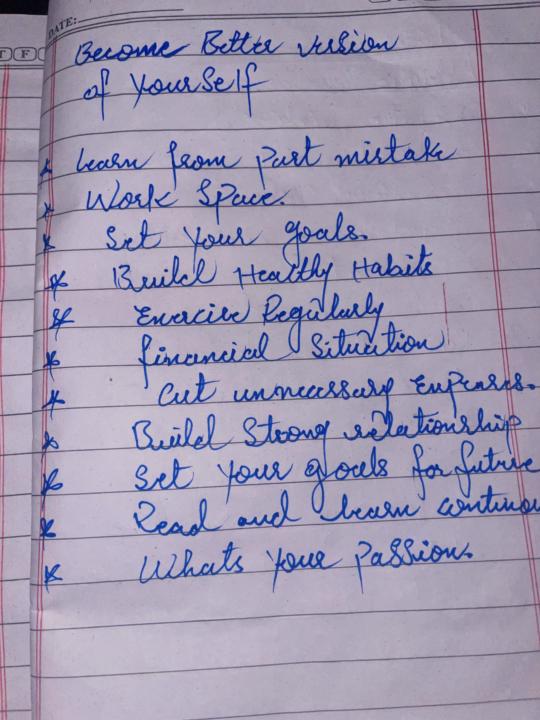 DATE:
T F
Become Better version
of YourSelf
* Learn from past mistake
* Work Space.
* Set Your goals.
* Build Healthy Habits
* Exercise Regularly
* financial Situation
* Cut unnecessary Expenses.
* Build Strong relationship
* Set Your goals for future
* Read and learn continou
* Whats Your Passion.